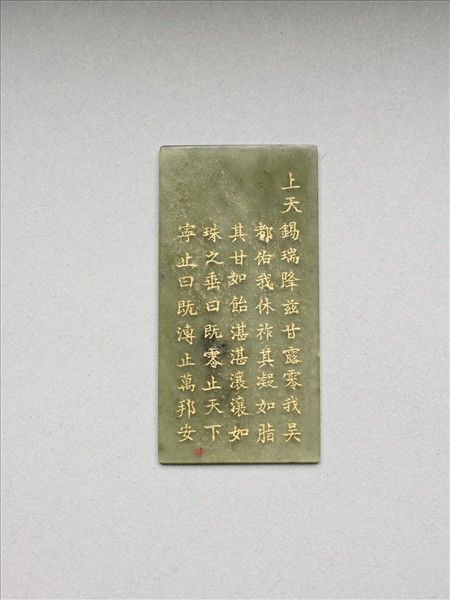 上天錫瑞降兹甘露零我吴
都佑我休祚其凝如脂
其甘如飴湛湛瀼瀼如
珠之垂曰既零止天下
寧止曰既漙止萬邦安